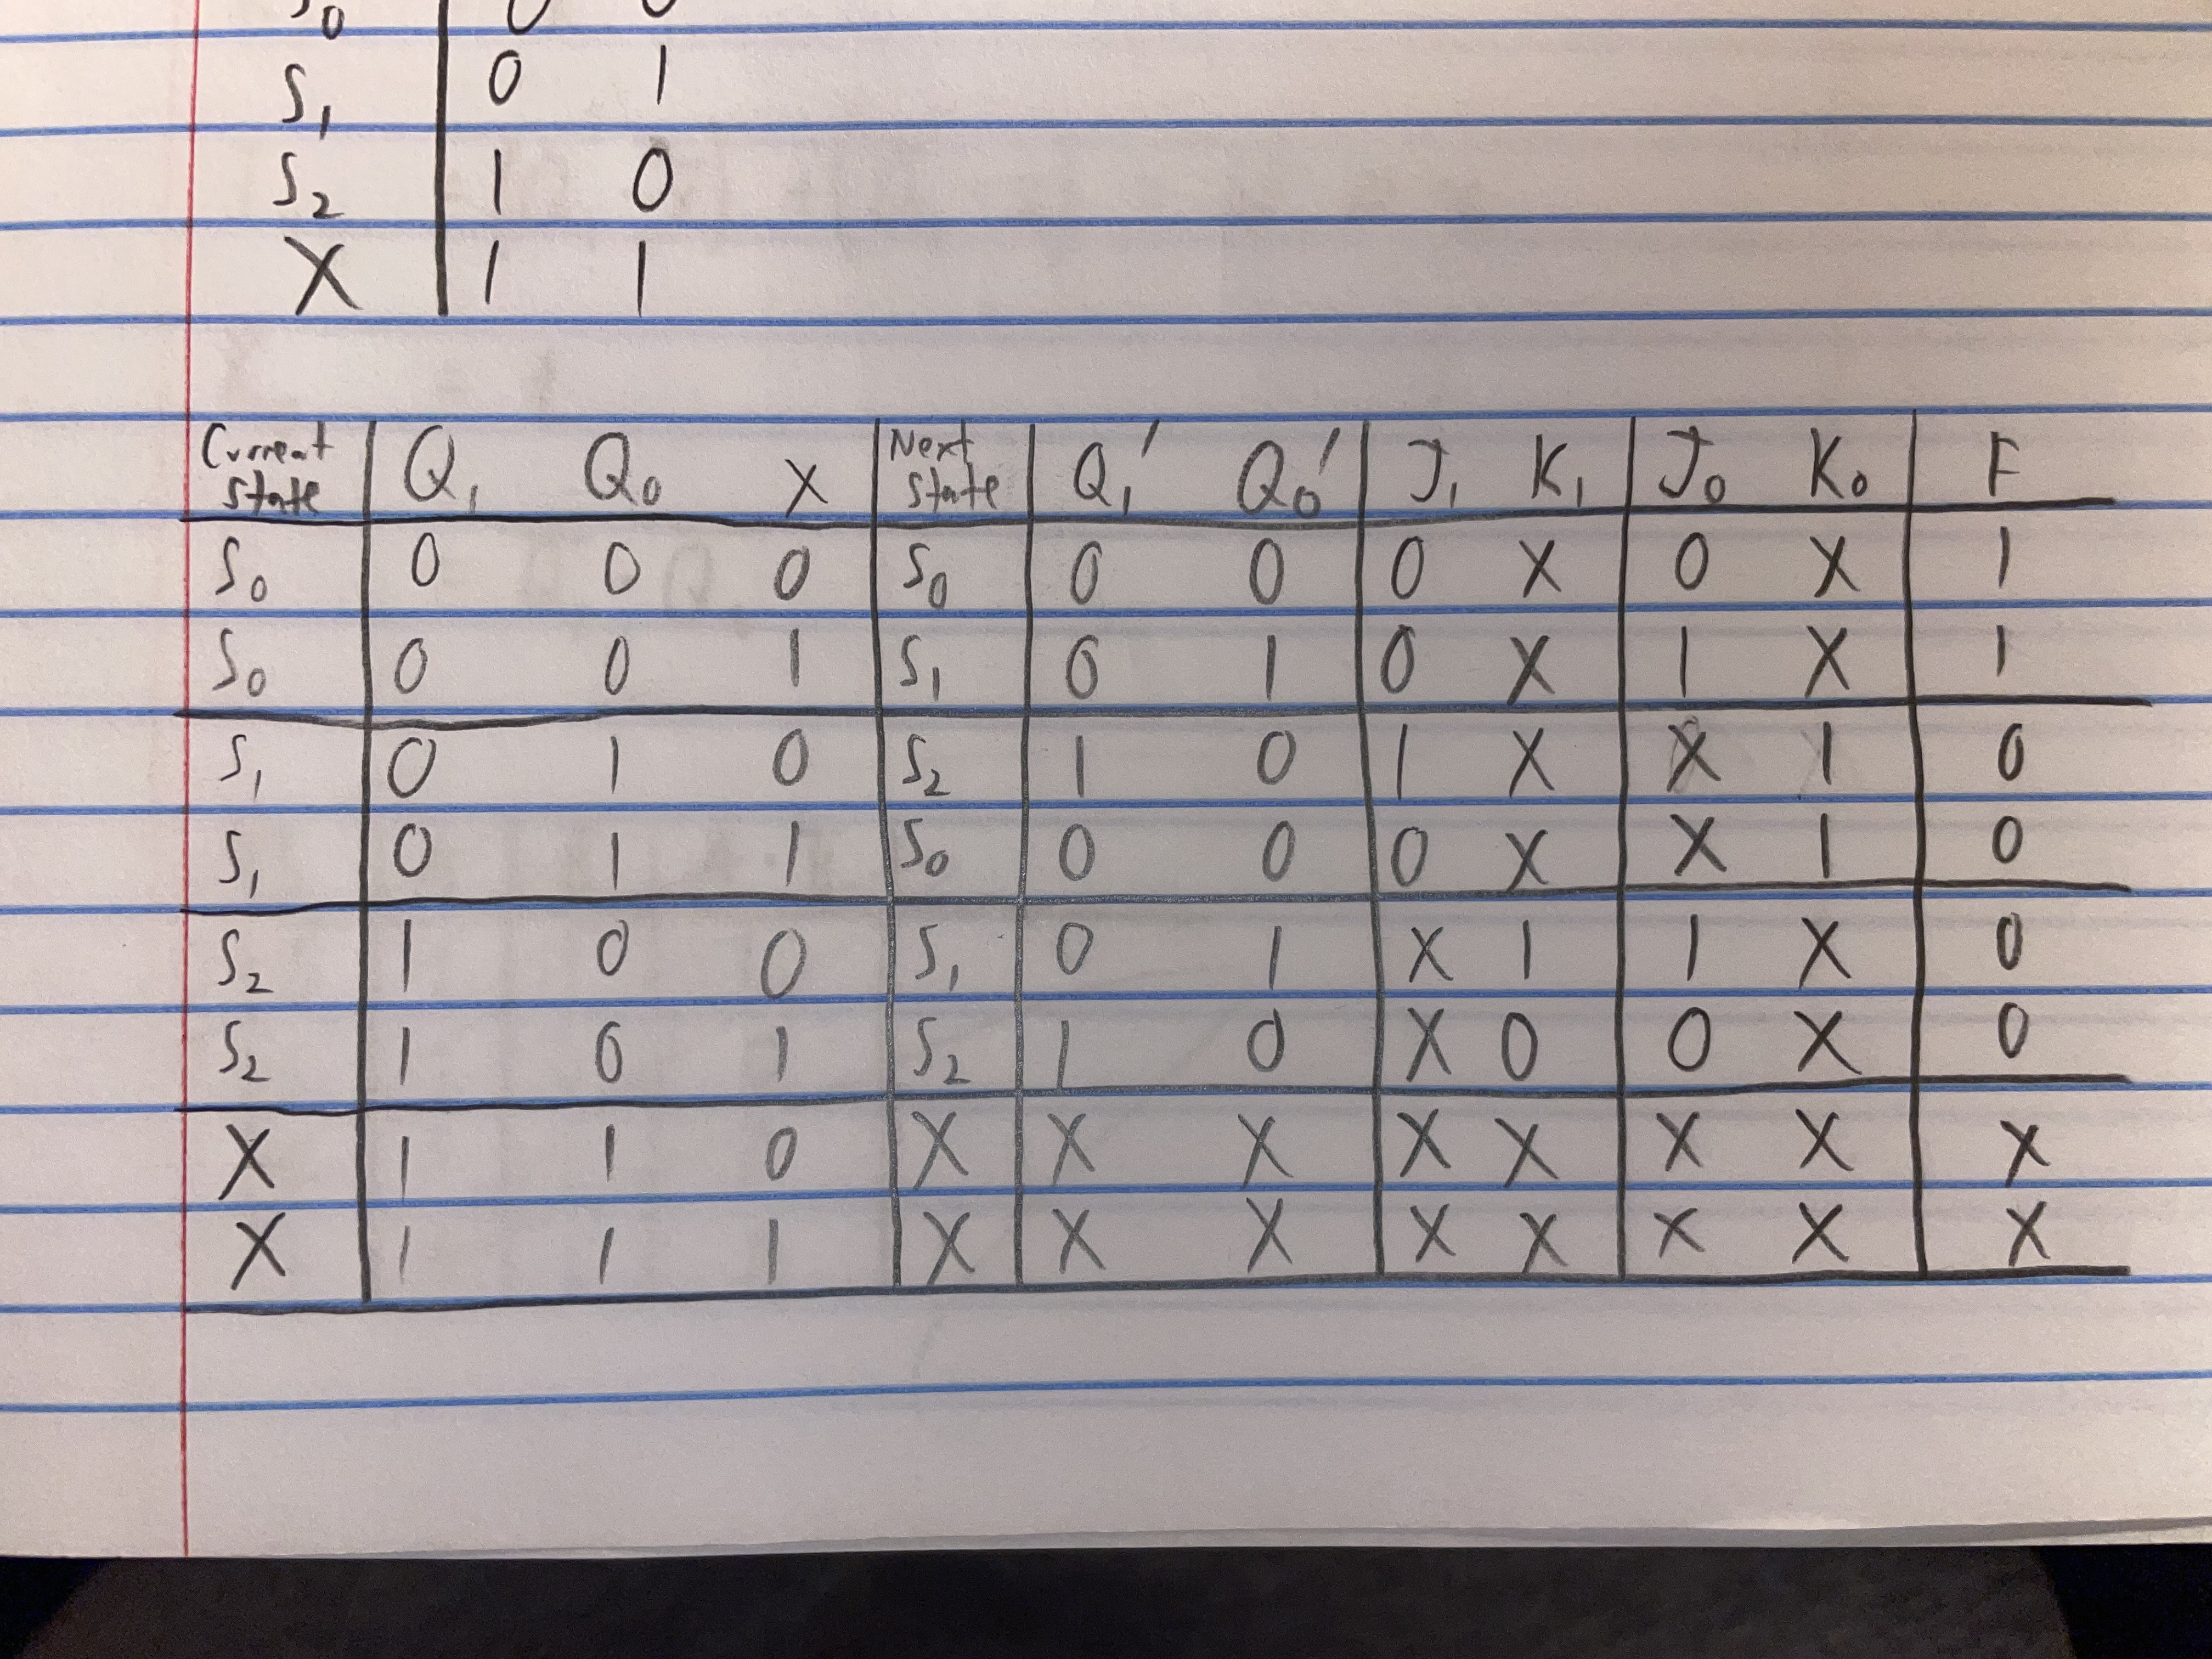 S0 0 0
S1 0 1
S2 1 0
X 1 1
Current state Q1 Q0 X Next state Q1' Q0' J1 K1 J0 K0 F
S0 0 0 0 S0 0 0 0 X 0 X 1
S0 0 0 1 S1 0 1 0 X 1 X 1
S1 0 1 0 S2 1 0 1 X X 1 0
S1 0 1 1 S0 0 0 0 X X 1 0
S2 1 0 0 S1 0 1 X 1 1 X 0
S2 1 0 1 S2 1 0 X 0 0 X 0
X 1 1 0 X X X X X X X X
X 1 1 1 X X X X X X X X